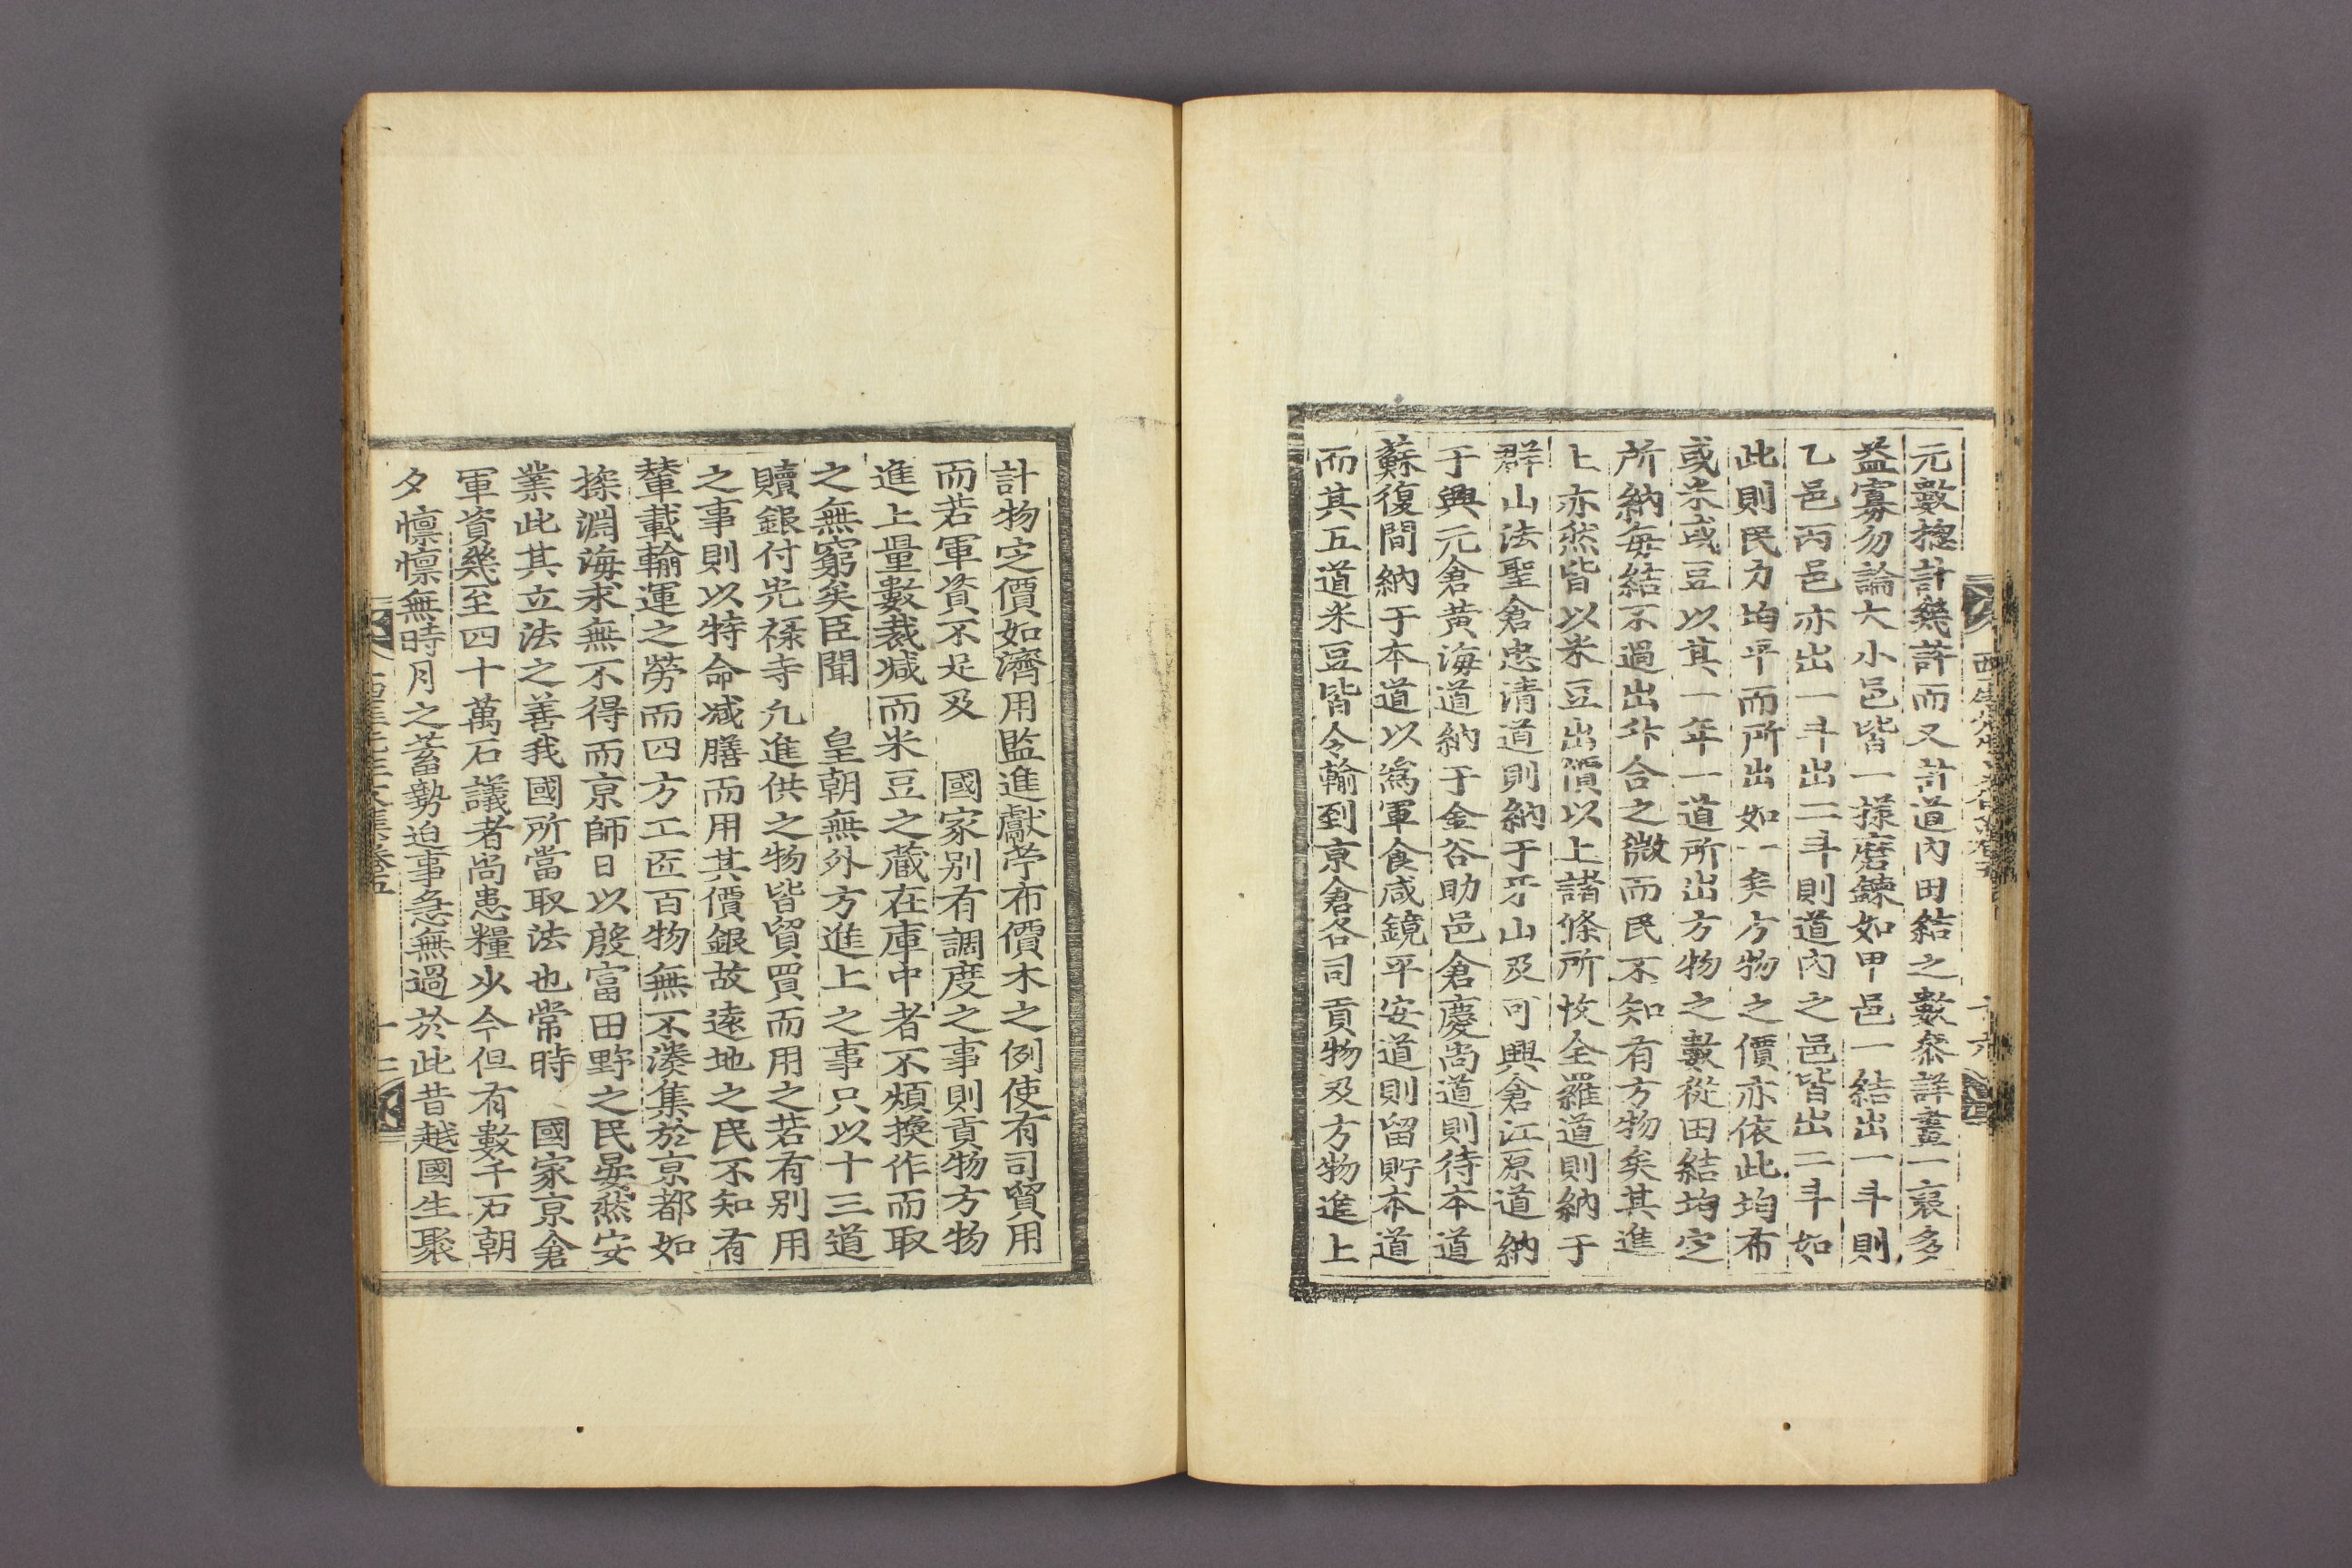 元數摠計幾許而又計道內田結之數參詳畫一裒多
益寡勿論大小邑皆一㨾磨鍊如甲邑一結出一斗則
乙邑丙邑亦出一斗出二斗則道內之邑皆出二斗如
此則民力均平而所出如一矣方物之價亦依此均布
或米或豆以其一年一道所出方物之數從田結均定
所納每結不過出升合之微而民不知有方物矣其進
上亦然皆以米豆出價以上諸條所收全羅道則納于
群山法聖倉忠清道則納于牙山及可興倉江原道納
于興元倉黃海道納于金谷助邑倉慶尚道則待本道
蘇復間納于本道以爲軍食咸鏡平安道則留貯本道
而其五道米豆皆令輸到京倉各司貢物及方物進上
計物定價如濟用監進獻苧布價木之例使有司貿用
而若軍資不足及 國家別有調度之事則貢物方物
進上量數裁减而米豆之藏在庫中者不煩換作而取
之無窮矣臣聞 皇朝無外方進上之事只以十三道
贖銀付光祿寺凢進供之物皆貿買而用之若有別用
之事則以特命减膳而用其價銀故遠地之民不知有
輦載輸運之勞而四方工匠百物無不湊集於京都如
探淵海求無不得而京師日以殷富田野之民晏然安
業此其立法之善我國所當取法也常時 國家京倉
軍資幾至四十萬石議者尚患糧少今但有數千石朝
夕懍懍無時月之蓄勢迫事急無過於此昔越國生聚
西厓先生文集卷五 十二